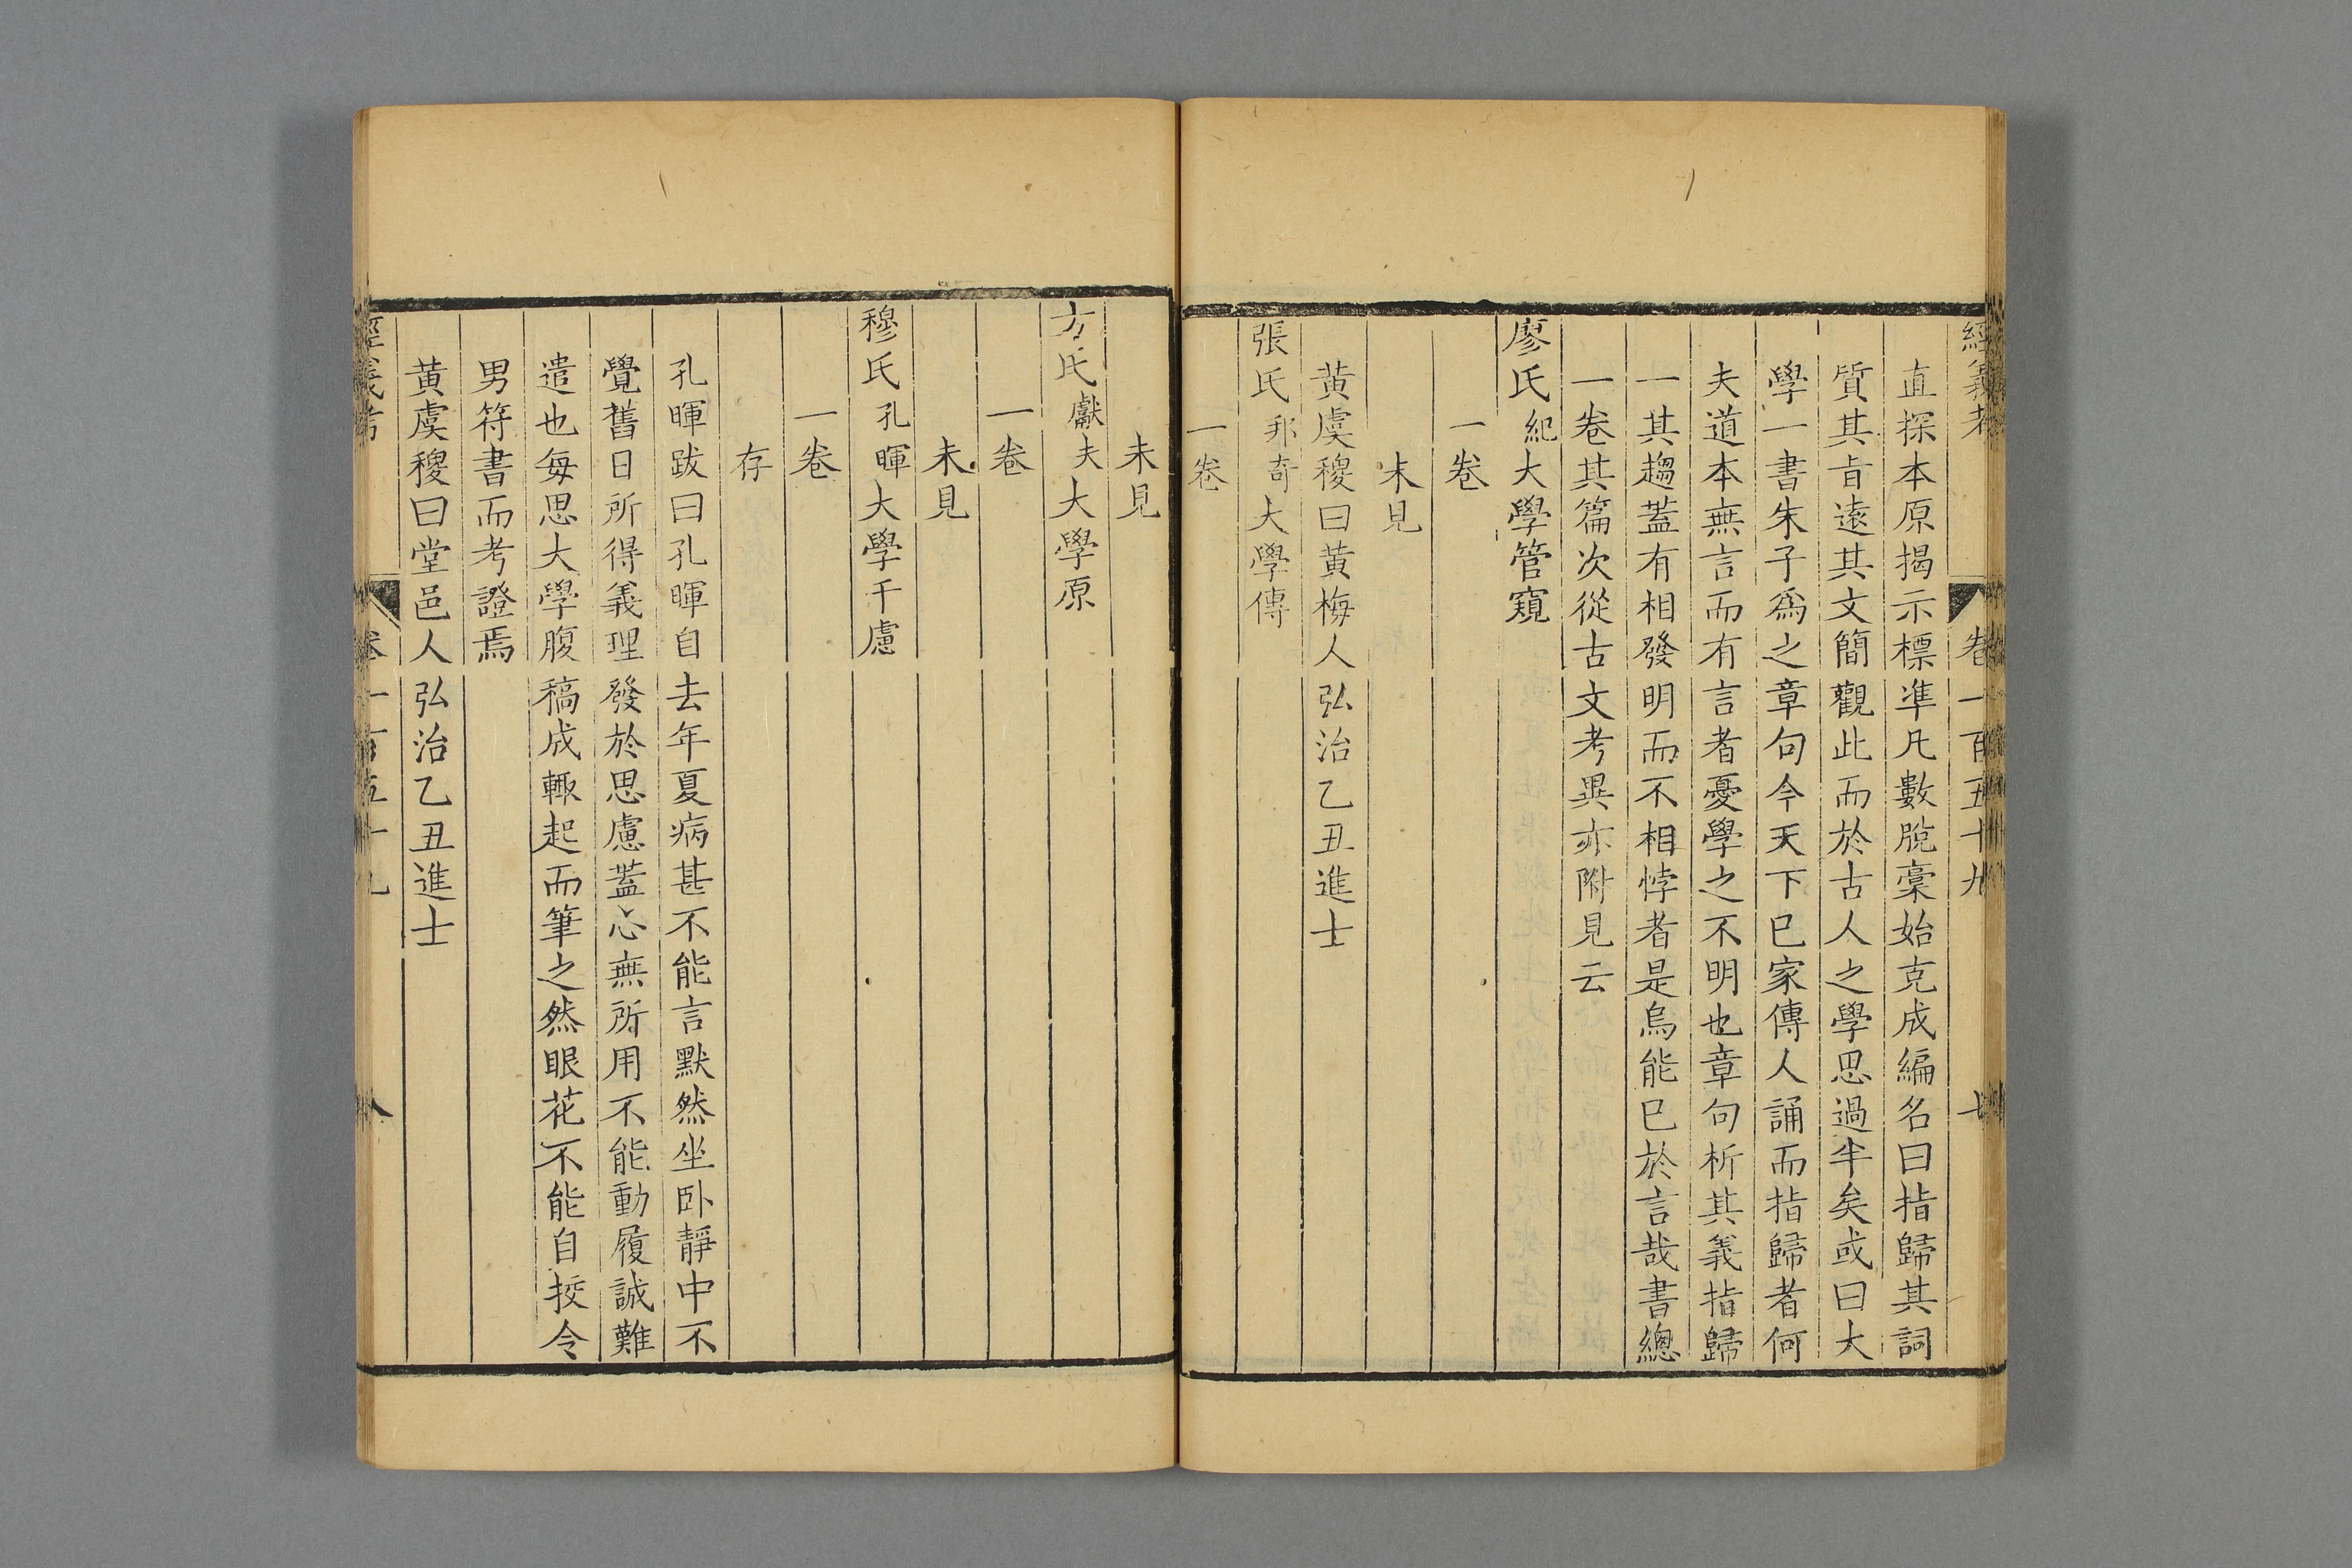 經義考 卷一百五十九 七
直探本原揭示標準凡數脫稾始克成編名曰指歸其詞
質其旨遠其文簡觀此而於古人之學思過半矣或曰大
學一書朱子爲之章句今天下已家傳人誦而指歸者何
夫道本無言而有言者憂學之不明也章句析其義指歸
一其趨蓋有相發明而不相悖者是烏能已於言哉書總
一卷其篇次從古文考異亦附見云
廖氏紀大學管窺
一卷
未見
黃虞稷曰黃梅人弘治乙丑進士
張氏邦奇大學傳
一卷
未見
方氏獻夫大學原
一卷
未見
穆氏孔暉大學千慮
一卷
存
孔暉跋曰孔暉自去年夏病甚不能言默然坐臥靜中不
覺舊日所得義理發於思慮蓋心無所用不能動履誠難
遣也每思大學腹稿成輒起而筆之然眼花不能自挍令
男符書而考證焉
黃虞稷曰堂邑人弘治乙丑進士
經義考 卷一百五十九 八